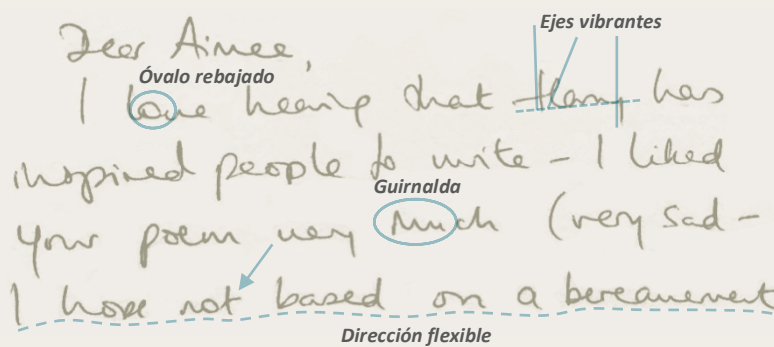 Ejes vibrantes
Dear Aimee,
Óvalo rebajado
I love hearing that Harry has
inspired people to write – I liked
Guirnalda
your poem very much (very sad –
I hope not based on a bereavement
Dirección flexible